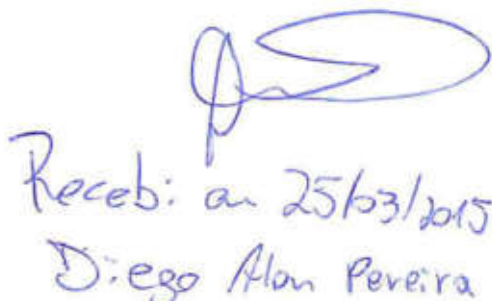 Recebi em 25/03/2015
Diego Alan Pereira